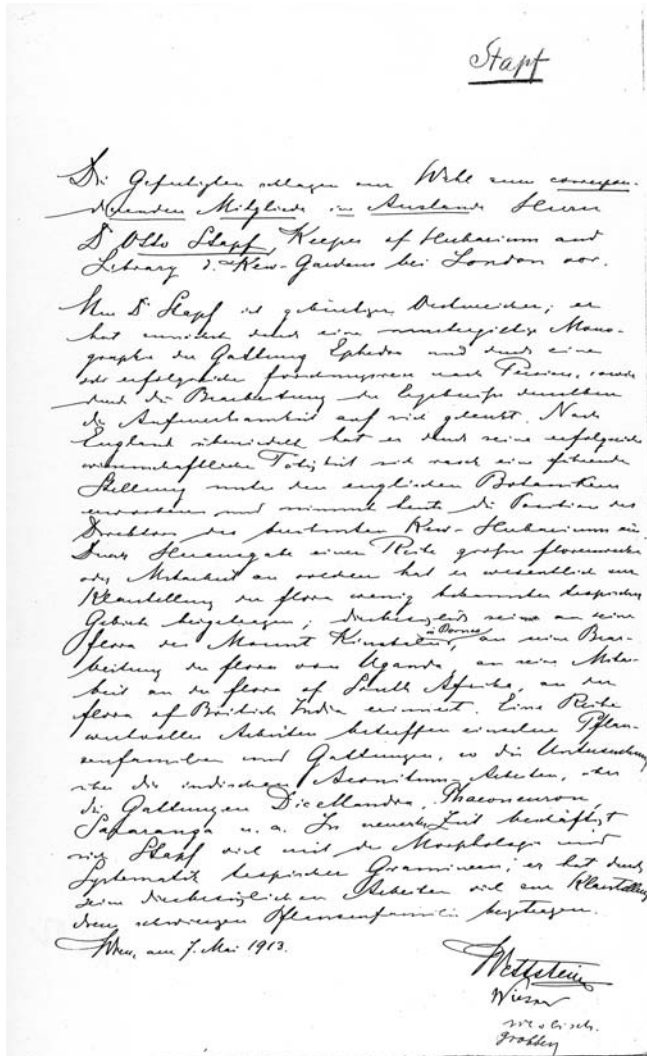 Stapf
Die Gefertigten schlagen zur Wahl zum correspon-
dierenden Mitgliede im Auslande Herrn
Dr Otto Stapf, Keeper of Herbarium and
Library d. Kew-Gardens bei London vor.
Herr Dr Stapf ist gebürtiger Oesterreicher; er
hat zunächst durch eine mustergiltige Mono-
graphie der Gattung Ephedra und durch eine
sehr erfolgreiche Forschungsreise nach Persien, sowie
durch die Bearbeitung der Ergebnisse derselben
die Aufmerksamkeit auf sich gelenkt. Nach
England übersiedelt hat er durch seine erfolgreiche
wissenschaftliche Tätigkeit sich rasch eine führende
Stellung unter den englischen Botanikern
erworben und nimmt heute die Position des
Direktors des berühmten Kew-Herbariums ein.
Durch Herausgabe einer Reihe großer Florenwerke
oder Mitarbeit an solchen hat er wesentlich zur
Klarstellung der Flora wenig bekannter tropischer
Gebiete beigetragen; diesbezüglich sei an seine
Flora des Mount Kinabalu in Borneo, an seine Bear-
beitung der Flora von Uganda, an seine Mitar-
beit an der Flora of South Afrika, an der
Flora of British India erinnert. Eine Reihe
wertvoller Arbeiten betreffen einzelne Pflan-
zenfamilien und Gattungen, so die Untersuchung
über die indischen Aconitum-Arten, über
die Gattungen Dicellandra, Phaeoneuron,
Sararanga u. a. In neuerer Zeit beschäftigt
sich Stapf viel mit der Morphologie und
Systematik tropischer Gramineen; er hat durch
seine diesbezüglichen Arbeiten viel zur Klarstellung
dieser schwierigen Pflanzenfamilie beigetragen.
Wien, am 7. Mai 1913.
Wettstein
Wiesner
Molisch.
Grobben